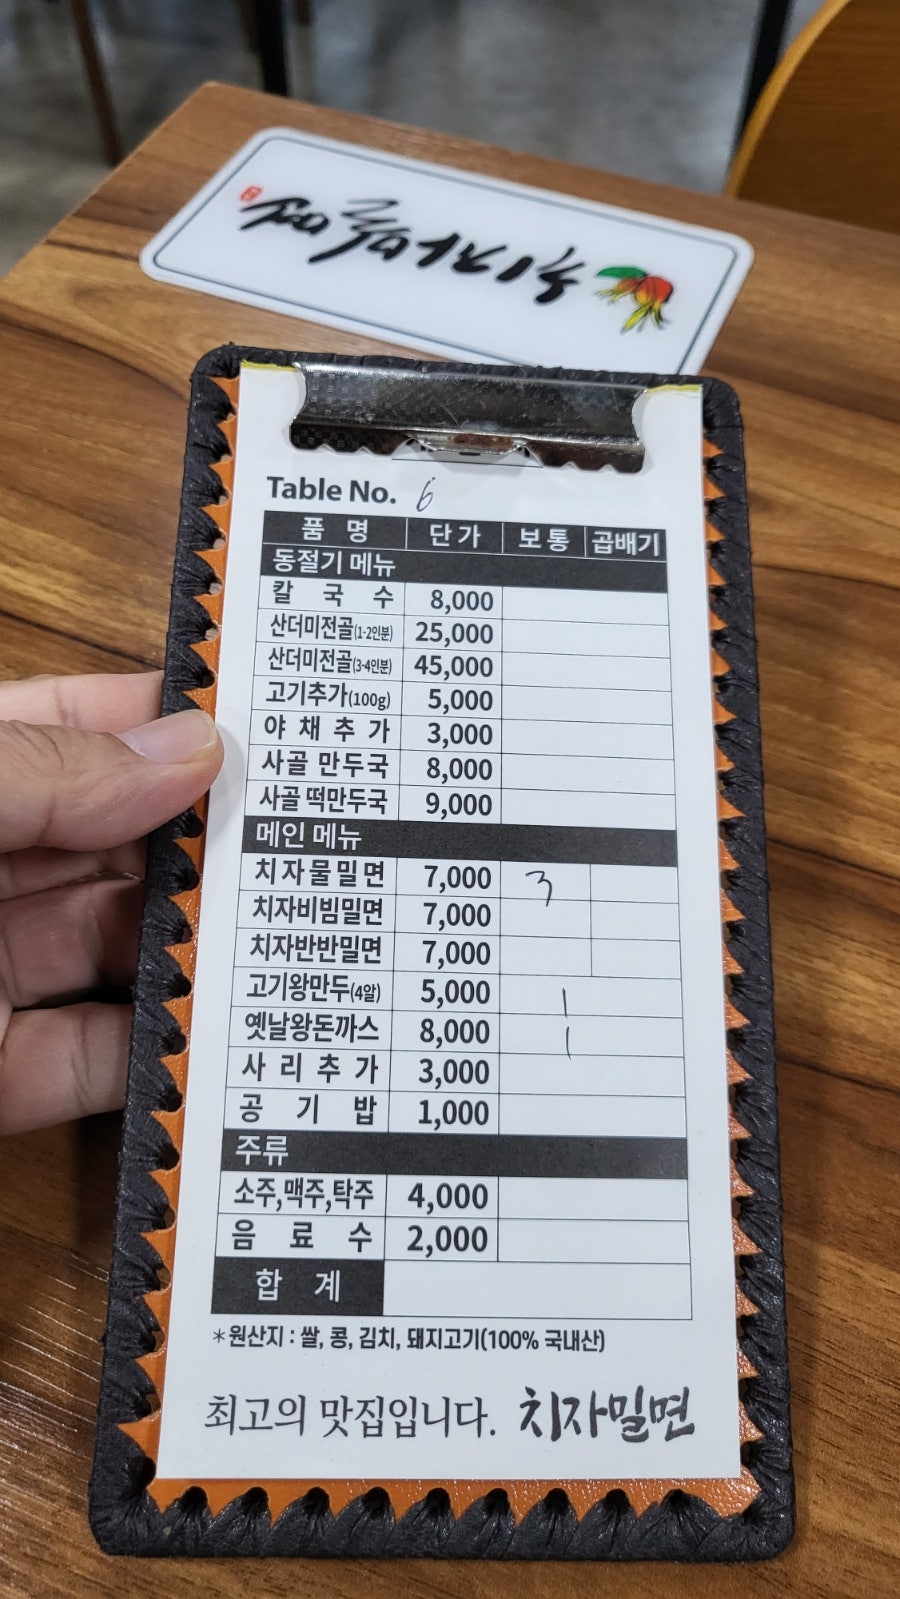 치자밀면
Table No. 6
품 명 단가 보통 곱배기
동절기 메뉴
칼 국 수 8,000
산더미전골(1-2인분) 25,000
산더미전골(3-4인분) 45,000
고기추가(100g) 5,000
야 채 추 가 3,000
사골 만두국 8,000
사골 떡만두국 9,000
메인 메뉴
치자물밀면 7,000 3
치자비빔밀면 7,000
치자반반밀면 7,000
고기왕만두(4알) 5,000 1
옛날왕돈까스 8,000 1
사 리 추 가 3,000
공 기 밥 1,000
주류
소주,맥주,탁주 4,000
음 료 수 2,000
합 계
*원산지 : 쌀, 콩, 김치, 돼지고기(100% 국내산)
최고의 맛집입니다. 치자밀면